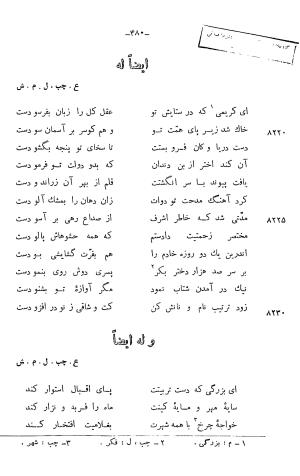 -۳۸۰-
ایضاً له
ع . چب . ل . م . ش
ای کریمی¹ که در ستایش تو عقل کل را زبان بفرسودست
۸۲۲۰ خاك شد زیر پای همّت تو و هم کوسر بر آسمان سودست
دست دریا و کان فرو بست تا سخای تو پنجه بگشودست
آن کند اختر از بن دندان که بدو دولت تو فرمودست
یافت پیوند با سر انگشتت قلم از بهر آن زراندودست
کرد آهنگ مدحت تو دوات زان دهان را بمشك آلودست
۸۲۲۵ مدّتی شد که خاطر اشرف از صداع رهی بر آسودست
مختصر زحمتیت دادستم که همه حشوهاش پالودست
اندرین یك دو روزه خادم را هم بفرّت گشایشی بودست
بر سر صد هزار دختر بکر² پسری دوش روی بنمودست
نیك در آمدن شتاب نمود مگر آوازهٔ تو بشنودست
۸۲۳۰ زود ترتیب نام و نانش کن کت وشاقی ز نو در افزودست
و له ایضاً
ع . چب . ل . م . ش
ای بزرگی که دست تربیتت پای اقبال استوار کند
سایهٔ مهر و مایهٔ کینت ماه را فربه و نزار کند
خواجهٔ چرخ³ با همه شهرت بغلامیت افتخار کند
۱- م : بزرگی . ۲- چب ، ل : فکر . ۳- چب : شهر .